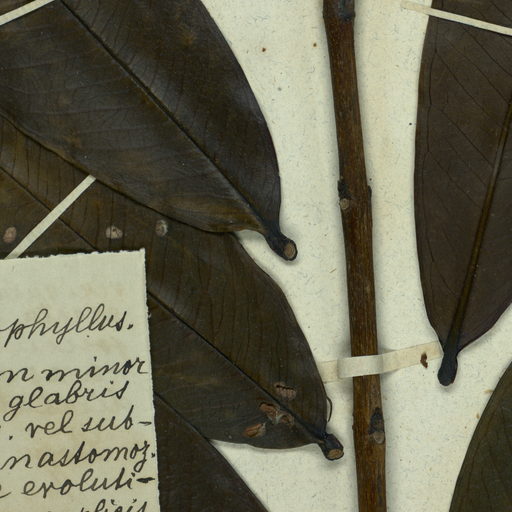 ophyllus.
m minor
glabris
vel sub-
nastomoz.
evoluti-